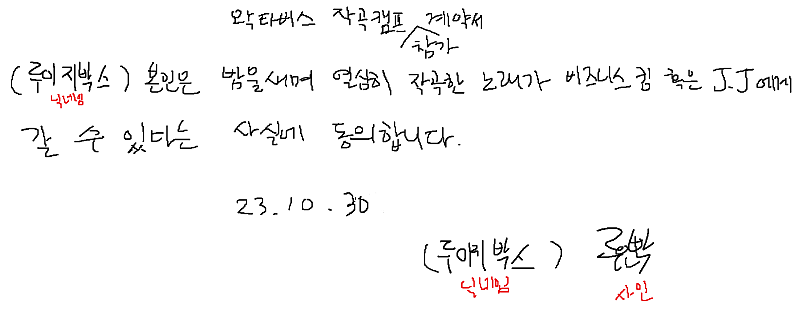 왁타버스 작곡캠프 참가 계약서
(루이지박스) 본인은 밤을새며 열심히 작곡한 노래가 비즈니스킴 혹은 J.J에게
닉네임
갈 수 있다는 사실에 동의합니다.
23.10.30
(루이지박스)
닉네임 사인